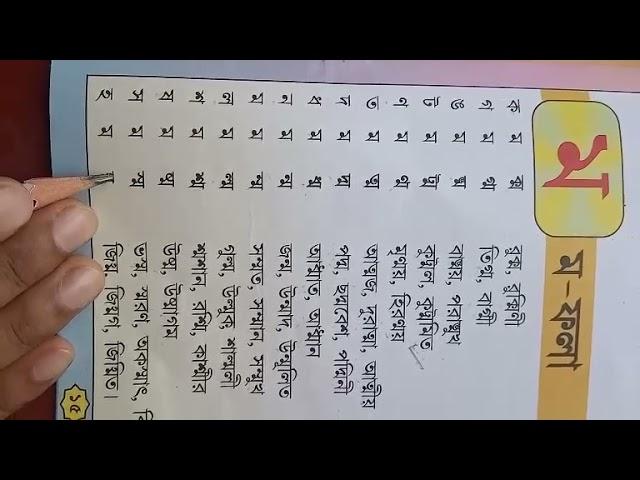 ম
ম-ফলা
ক ম ক্ম রুক্ম, রুক্মিণী
গ ম গ্ম তিগ্ম, বাগ্মী
ঙ ম ঙ্ম বাঙ্ময়, পরাঙ্মুখ
ট ম ট্ম কুট্মল, কুট্মমিত
ণ ম ণ্ম মৃণ্ময়, হিরণ্ময়
ত ম ত্ম আত্মজ, দুরাত্মা, আত্মীয়
দ ম দ্ম পদ্ম, ছদ্মবেশ, পদ্মিনী
ধ ম ধ্ম আধ্মাত, আধ্মান
ন ম ন্ম জন্ম, উন্মাদ, উন্মুলিত
ম ম ম্ম সম্মত, সম্মান, সম্মুখ
ল ম ল্ম গুল্ম, উল্মুক, শাল্মলী
শ ম শ্ম শ্মশান, রশ্মি, কাশ্মীর
ষ ম ষ্ম উষ্ম, উষ্মাগম
স ম স্ম ভস্ম, স্মরণ, অকস্মাৎ,
হ ম জিহ্ম, জিহ্মগ, জিহ্মিত।
১৫